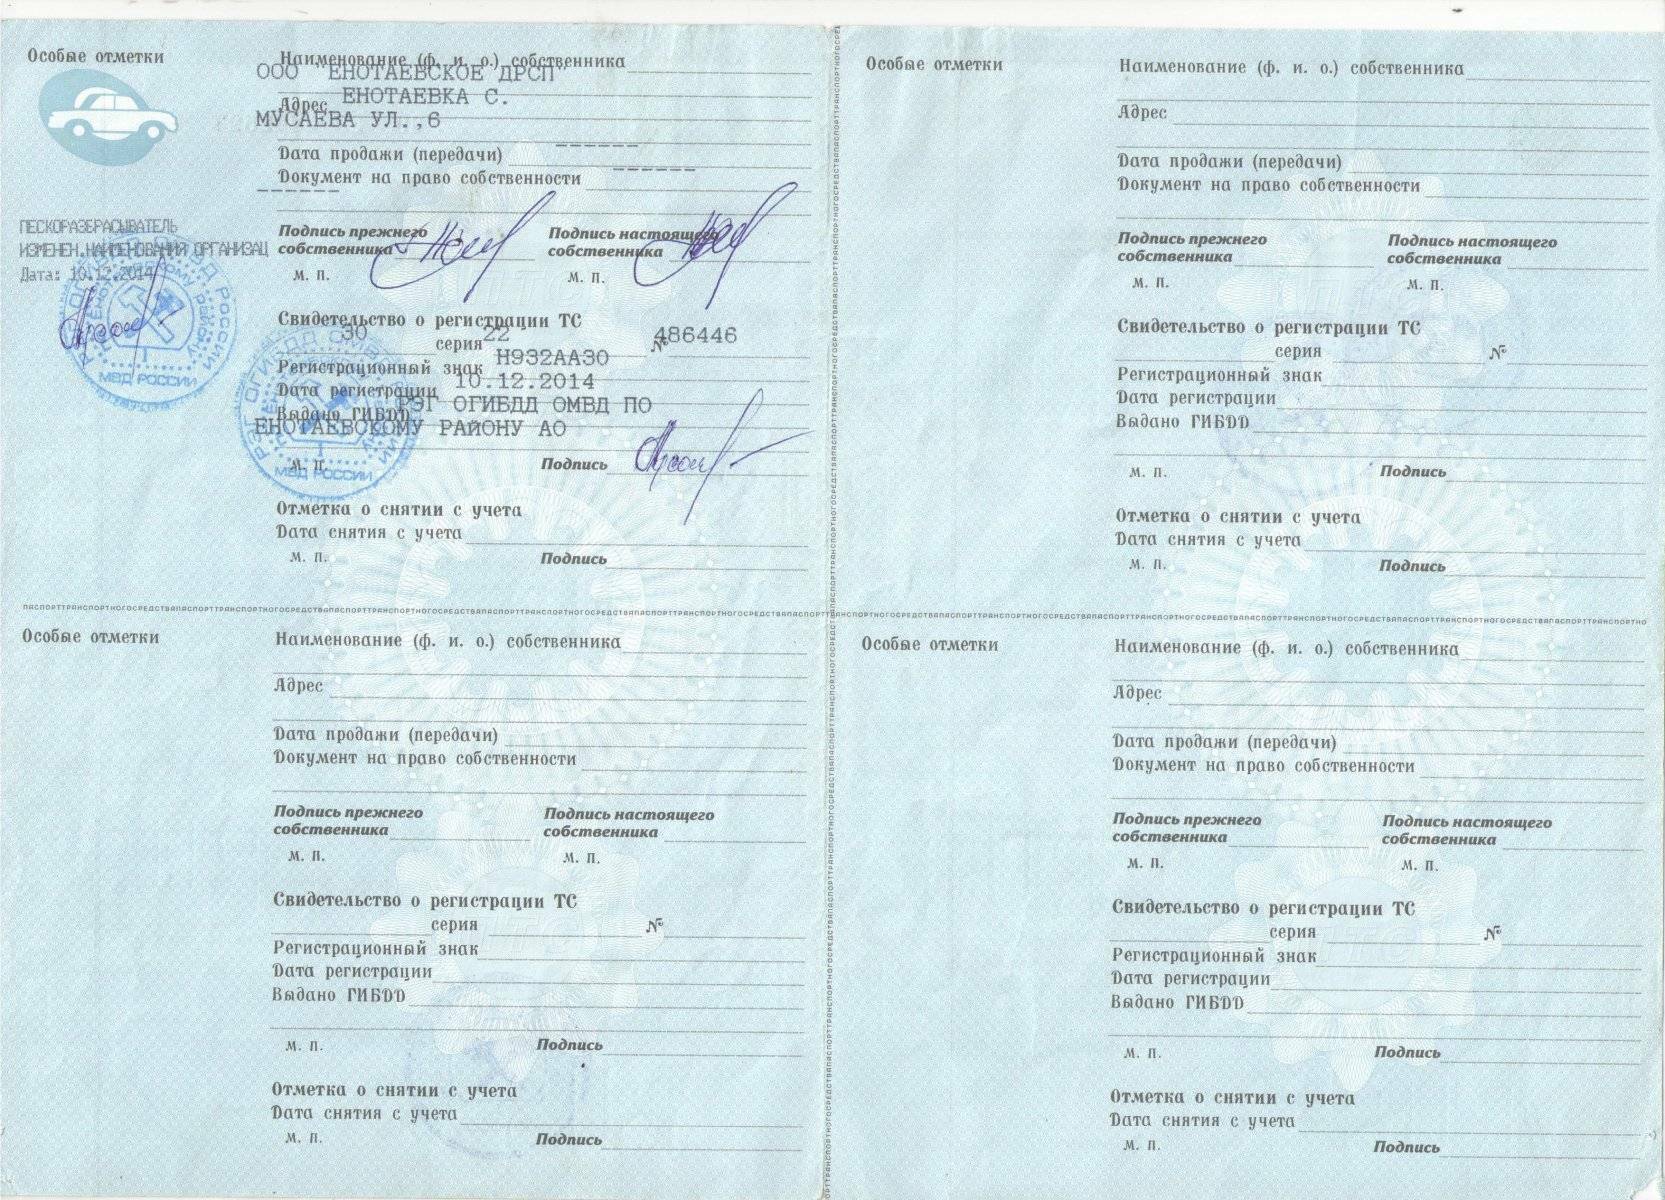 Особые отметки
ПЕСКОРАЗБРАСЫВАТЕЛЬ
ИЗМЕНЕН.НАИМЕНОВАНИЯ ОРГАНИЗАЦ
Дата: 10.12.2014
МВД РОССИИ
Наименование (ф. и. о.) собственника
ООО "ЕНОТАЕВСКОЕ ДРСП"
Адрес ЕНОТАЕВКА С.
МУСАЕВА УЛ.,6
Дата продажи (передачи) ------
Документ на право собственности ------
------
Подпись прежнего собственника
Подпись настоящего собственника
м. п.
м. п.
Свидетельство о регистрации ТС
30 серия 22 № 486446
Регистрационный знак Н932АА30
Дата регистрации 10.12.2014
Выдано ГИБДД РЭГ ОГИБДД ОМВД ПО
ЕНОТАЕВСКОМУ РАЙОНУ АО
м. п. Подпись
МВД РОССИИ
Отметка о снятии с учета
Дата снятия с учета
м. п. Подпись
Особые отметки
Наименование (ф. и. о.) собственника
Адрес
Дата продажи (передачи)
Документ на право собственности
Подпись прежнего собственника
Подпись настоящего собственника
м. п.
м. п.
Свидетельство о регистрации ТС
серия №
Регистрационный знак
Дата регистрации
Выдано ГИБДД
м. п. Подпись
Отметка о снятии с учета
Дата снятия с учета
м. п. Подпись
Особые отметки
Наименование (ф. и. о.) собственника
Адрес
Дата продажи (передачи)
Документ на право собственности
Подпись прежнего собственника
Подпись настоящего собственника
м. п.
м. п.
Свидетельство о регистрации ТС
серия №
Регистрационный знак
Дата регистрации
Выдано ГИБДД
м. п. Подпись
Отметка о снятии с учета
Дата снятия с учета
м. п. Подпись
Особые отметки
Наименование (ф. и. о.) собственника
Адрес
Дата продажи (передачи)
Документ на право собственности
Подпись прежнего собственника
Подпись настоящего собственника
м. п.
м. п.
Свидетельство о регистрации ТС
серия №
Регистрационный знак
Дата регистрации
Выдано ГИБДД
м. п. Подпись
Отметка о снятии с учета
Дата снятия с учета
м. п. Подпись